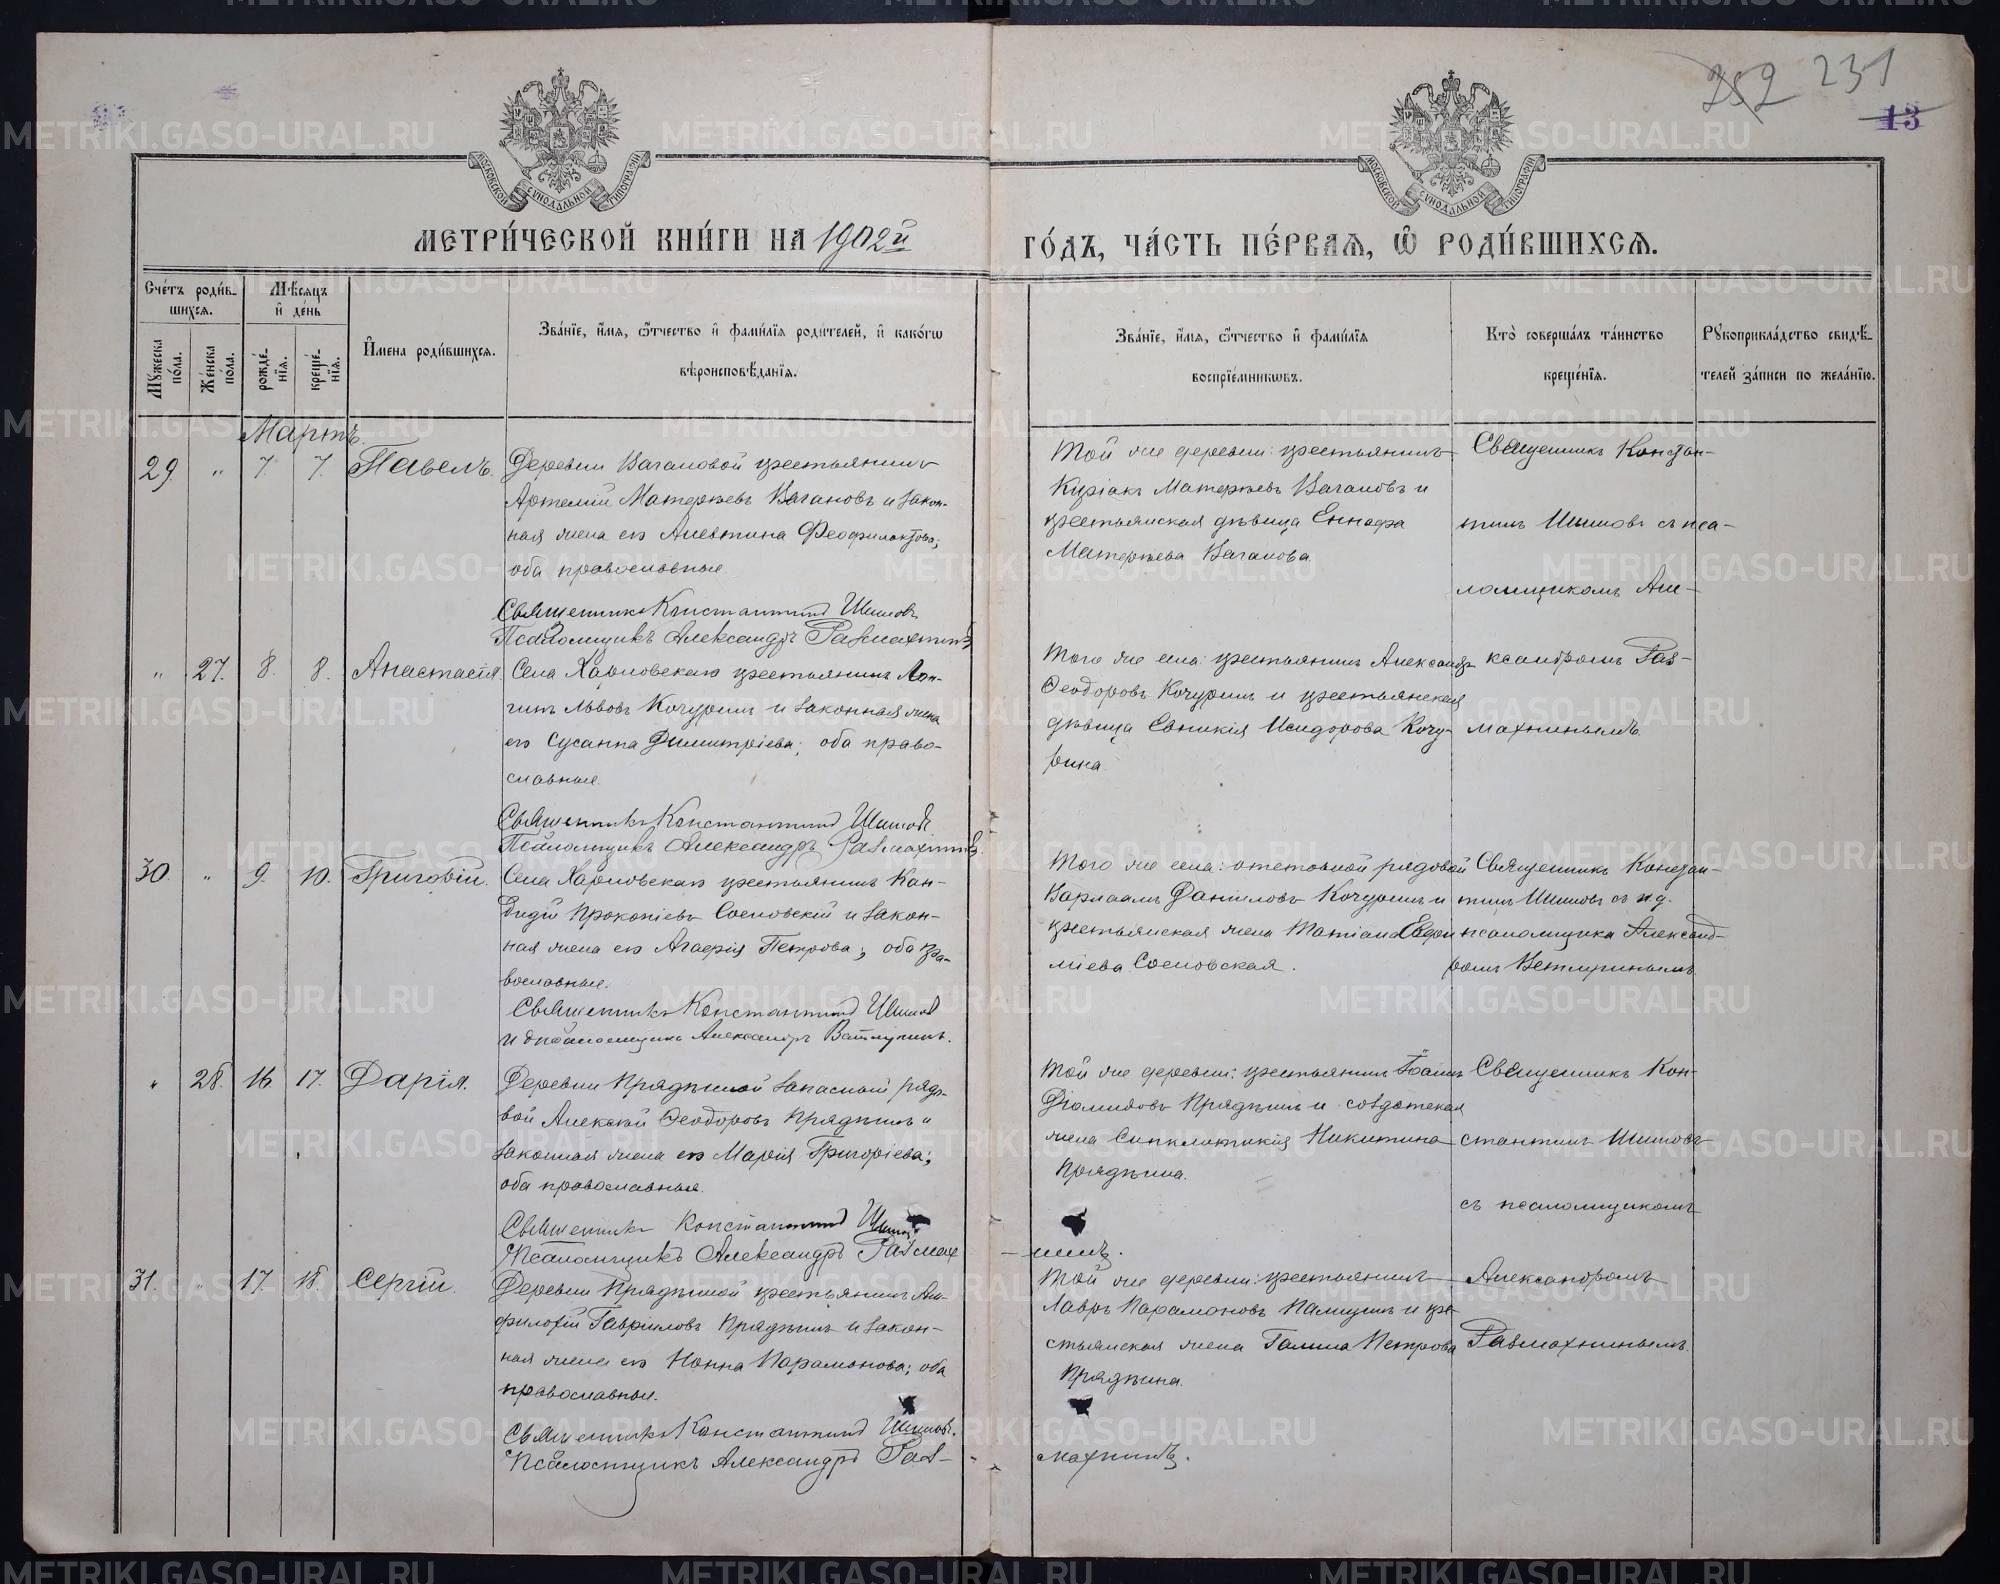 252 231
13
МОСКОВСКОЙ СУНОДАЛЬНОЙ ТИПОГРАФІИ
МОСКОВСКОЙ СУНОДАЛЬНОЙ ТИПОГРАФІИ
МЕТРИ́ЧЕСКОЙ КНИ́ГИ НА 1902й
ГО́ДЪ, ЧА́СТЬ ПЕ́РВАѦ, Ѡ҆ РОДИ́ВШИХСѦ.
Сче́тъ роди́в-
шихсѧ.
Мꙋ́жеска по́ла.
Же́нска по́ла.
Мѣ́сѧцъ
и҆ де́нь
рожде́-
нїѧ.
креще́-
нїѧ.
И҆мена роди́вшихсѧ.
Зва́нїе, и҆́мѧ, ѻ҆́тчество и҆ фами́лїѧ роди́телей, и҆ како́гѡ
вѣроисповѣ́данїѧ.
Зва́нїе, и҆́мѧ, ѻ҆́тчество и҆ фами́лїѧ
воспрїе́мникѡвъ.
Кто̀ соверша́лъ та́инство
креще́нїѧ.
Рꙋкоприкла́дство свидѣ́-
телей за́писи по жела́нїю.
Мартъ.
29. " 7. 7. Павелъ.
Деревни Вагановой крестьянинъ
Артемій Матерневъ Вагановъ и закон-
ная жена его Алевтина Феофилактова;
оба православные.
Священникъ Константинъ Шишовъ
Псаломщикъ Александръ Размахнинъ
Той же деревни: крестьянинъ
Куріакъ Матерневъ Вагановъ и
крестьянская дѣвица Еннафа
Матернева Ваганова.
Священникъ Констан-
тинъ Шишовъ съ пса-
ломщикомъ Але-
" 27. 8. 8. Анастасія.
Села Харловскаго крестьянинъ Лон-
гинъ Львовъ Кочуринъ и законная жена
его Сусанна Димитріева; оба право-
славные.
Священникъ Константинъ Шишовъ
Псаломщикъ Александръ Размахнинъ.
Того же села: крестьянинъ Александръ
Ѳеодоровъ Кочуринъ и крестьянская
дѣвица Евникія Исидорова Кочу-
рина.
ксандромъ Раз-
махнинымъ.
30. " 9. 10. Григорій.
Села Харловскаго крестьянинъ Кан-
дидій Прокопіевъ Сосновскій и закон-
ная жена его Агаѳія Петрова; оба пра-
вославные.
Священникъ Константинъ Шишовъ
И д псаломщика Александръ Ветлугинъ.
Того же села: отставной рядовой
Варлаамъ Даніиловъ Кочуринъ и
крестьянская жена Татіана Евфи-
міева Сосновская.
Священникъ Констан-
тинъ Шишовъ съ и.д.
псаломщика Александ-
ромъ Ветлугинымъ.
" 28. 16. 17. Дарія.
Деревни Прядѣиной запасный рядо-
вой Алексій Ѳеодоровъ Прядѣинъ и
законная жена его Марія Григоріева;
оба православные.
Священникъ Константинъ Шишовъ
Псаломщикъ Александръ Размах
-нинъ.
Той же деревни: крестьянинъ Іоаннъ
Діомидовъ Прядѣинъ и солдатская
жена Синклитикія Никитина
Прядѣина.
Священникъ Кон-
стантинъ Шишовъ
съ псаломщикомъ
31. " 17. 18. Сергій.
Деревни Прядѣиной крестьянинъ Ам-
филохій Гавріиловъ Прядѣинъ и закон-
ная жена его Нонна Парамонова; оба
православные.
Священникъ Константинъ Шишовъ.
Псаломщикъ Александръ Раз-
махнинъ.
Той же деревни: крестьянинъ
Лавръ Парамоновъ и кре-
стьянская жена Галина Петрова
Прядѣина.
Александромъ
Размахнинымъ.
METRIKI.GASO-URAL.RU